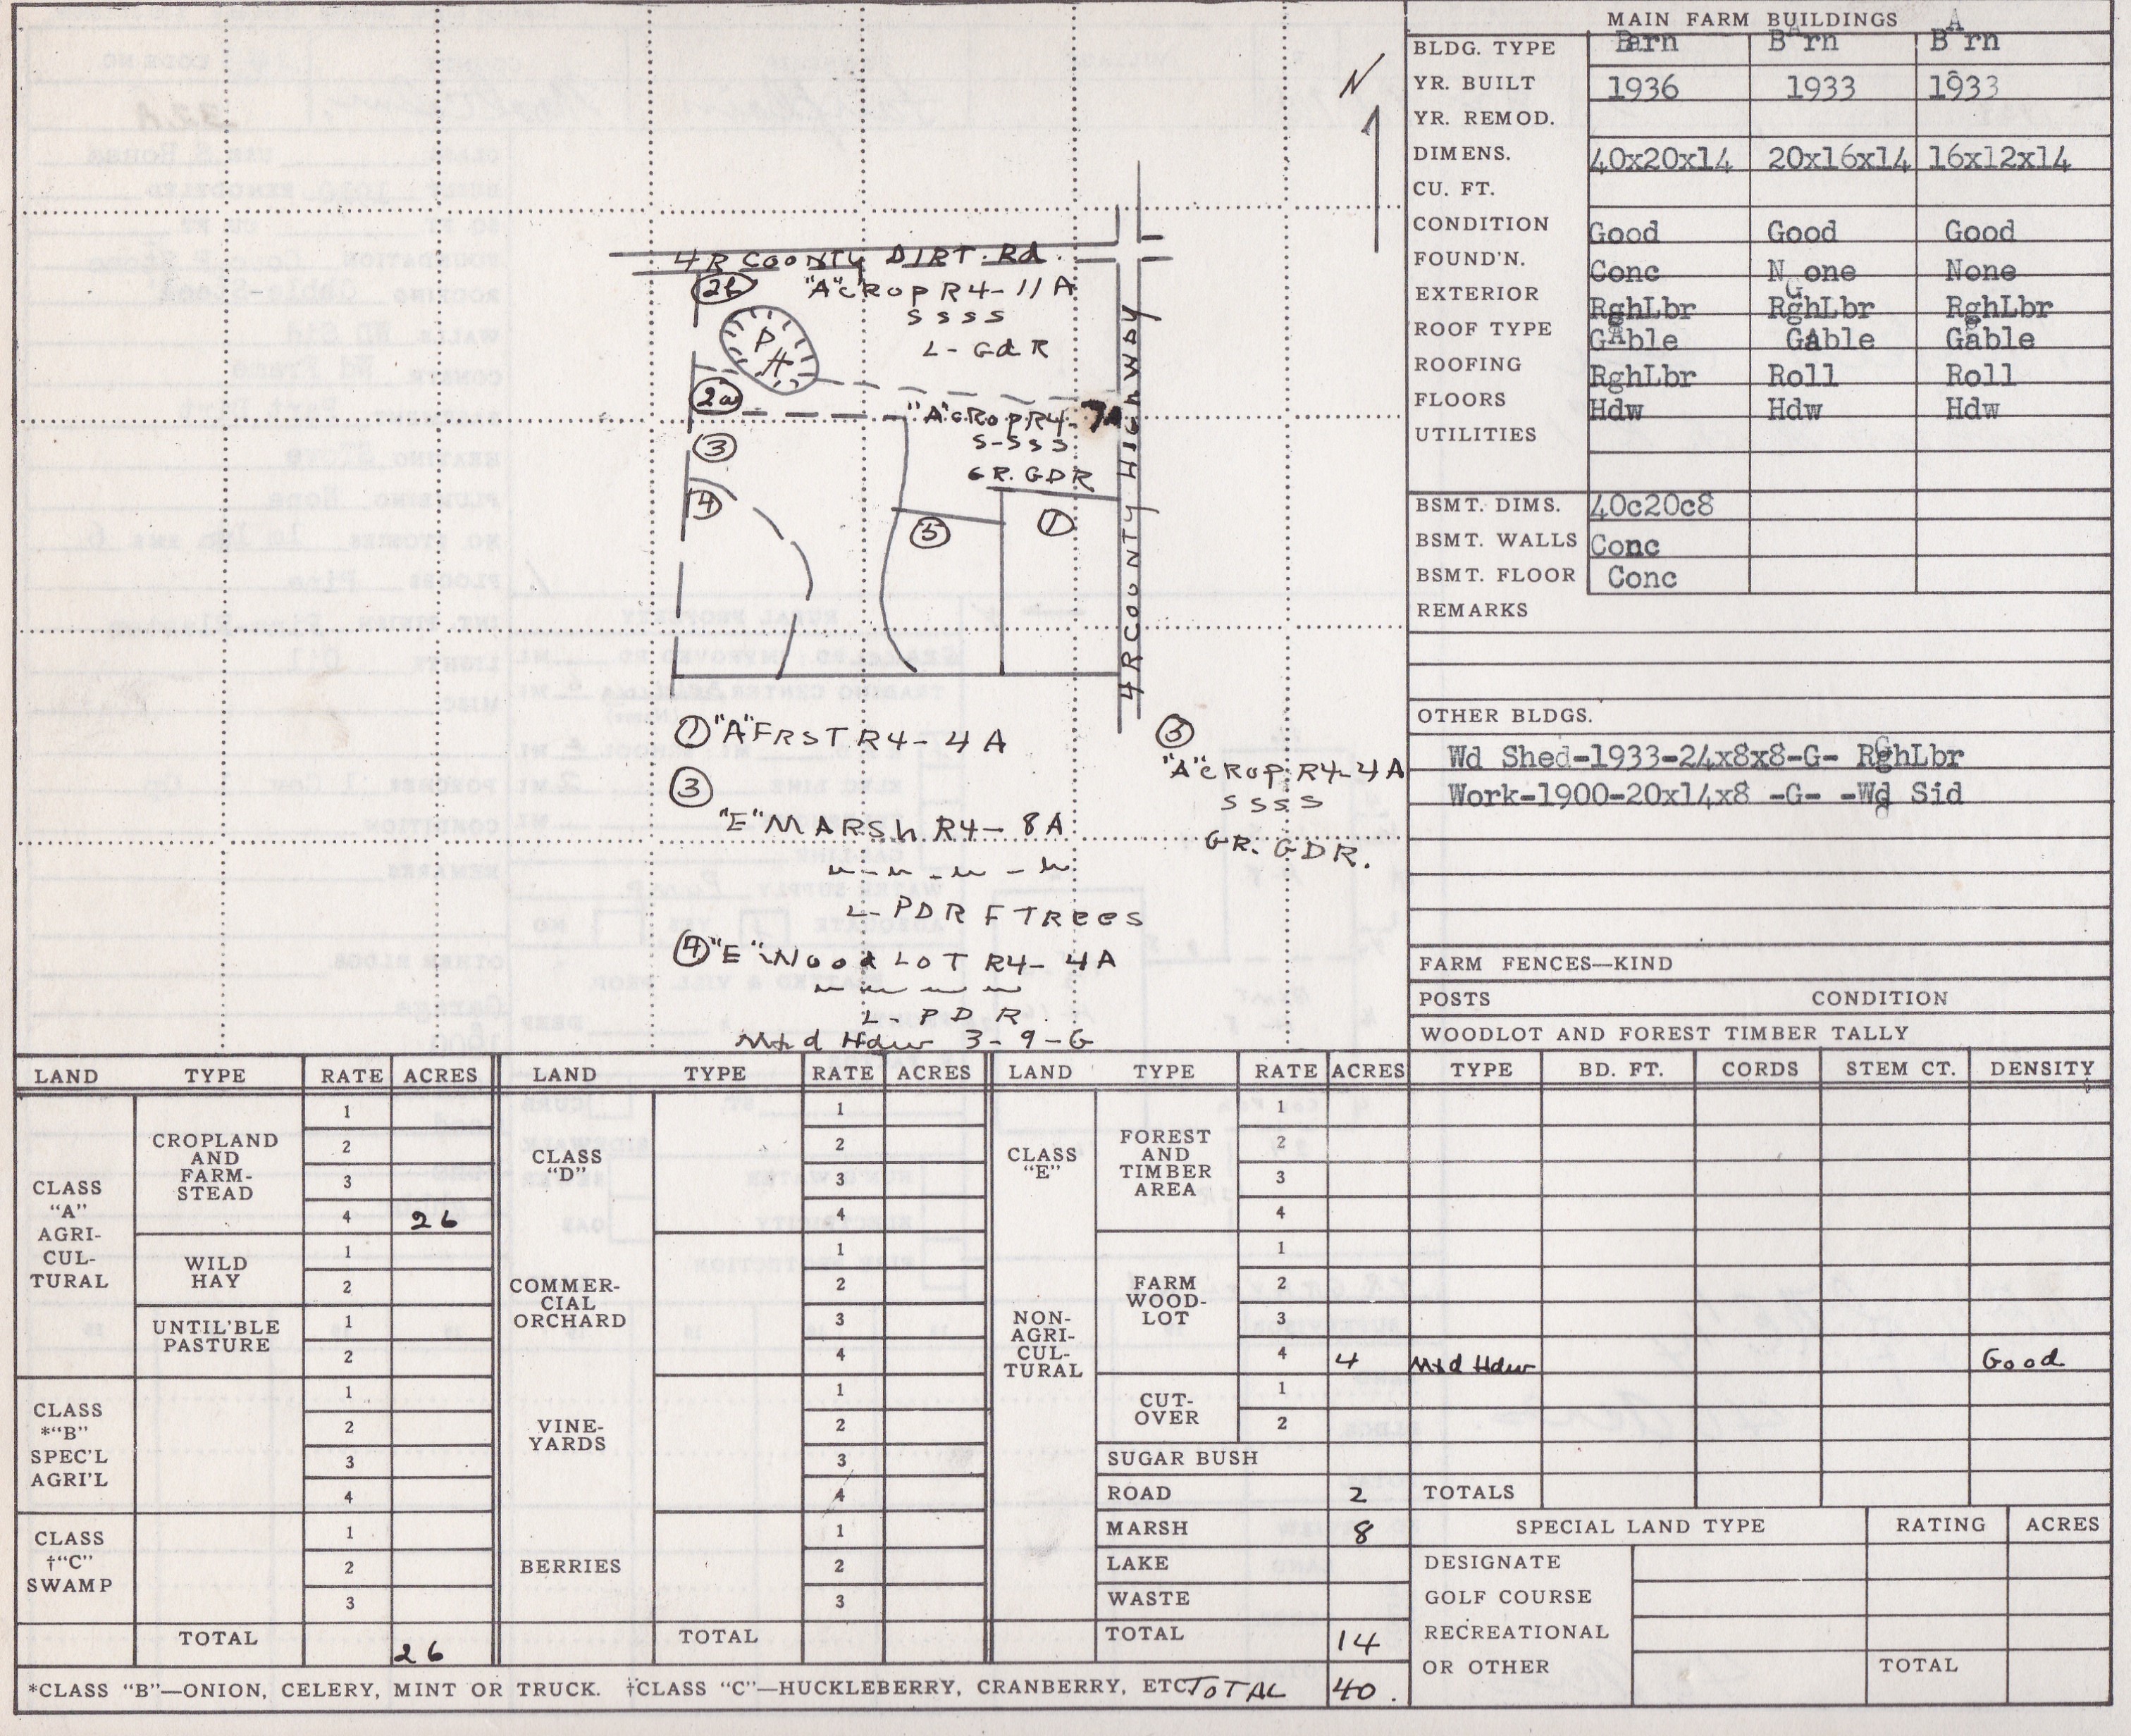 N
4 R COUNTY DIRT. Rd.
2b "A" CROP R4-11A
S S S S
L - GdR
PH
2a "A" CROP R4- 7A
S-SSS
GR. GDR
3
4
5
1
4 R COUNTY HIGHWAY
1 "A" FRST R4-4A
3
"E" MARSH R4- 8A
L- PDR F TREES
4 "E" WoodLOT R4- 4A
L. PDR
Mxd Hdw 3-9-G
5
"A" CROP R4-4A
S S S S
GR. GDR.
MAIN FARM BUILDINGS
BLDG. TYPE Barn Barn Barn
YR. BUILT 1936 1933 1933
YR. REMOD.
DIMENS. 40x20x14 20x16x14 16x12x14
CU. FT.
CONDITION Good Good Good
FOUND'N. Conc None None
EXTERIOR RghLbr RghLbr RghLbr
ROOF TYPE Gable Gable Gable
ROOFING RghLbr Roll Roll
FLOORS Hdw Hdw Hdw
UTILITIES
BSMT. DIMS. 40c20c8
BSMT. WALLS Conc
BSMT. FLOOR Conc
REMARKS
OTHER BLDGS.
Wd Shed-1933-24x8x8-G- RghLbr
Work-1900-20x14x8 -G- -Wd Sid
FARM FENCES—KIND
POSTS CONDITION
WOODLOT AND FOREST TIMBER TALLY
TYPE BD. FT. CORDS STEM CT. DENSITY
Mxd Hdw Good
TOTALS
SPECIAL LAND TYPE RATING ACRES
DESIGNATE
GOLF COURSE
RECREATIONAL
OR OTHER TOTAL
LAND TYPE RATE ACRES
CLASS
"A"
AGRI-
CUL-
TURAL
CROPLAND
AND
FARM-
STEAD
1
2
3
4 26
WILD
HAY
1
2
UNTIL'BLE
PASTURE
1
2
CLASS
*"B"
SPEC'L
AGRI'L
1
2
3
4
CLASS
†"C"
SWAMP
1
2
3
TOTAL 26
LAND TYPE RATE ACRES
CLASS
"D"
1
2
3
4
COMMER-
CIAL
ORCHARD
1
2
3
4
VINE-
YARDS
1
2
3
4
BERRIES
1
2
3
TOTAL
LAND TYPE RATE ACRES
CLASS
"E"
NON-
AGRI-
CUL-
TURAL
FOREST
AND
TIMBER
AREA
1
2
3
4
FARM
WOOD-
LOT
1
2
3
4 4
CUT-
OVER
1
2
SUGAR BUSH
ROAD 2
MARSH 8
LAKE
WASTE
TOTAL 14
*CLASS "B"—ONION, CELERY, MINT OR TRUCK. †CLASS "C"—HUCKLEBERRY, CRANBERRY, ETC. TOTAL 40.